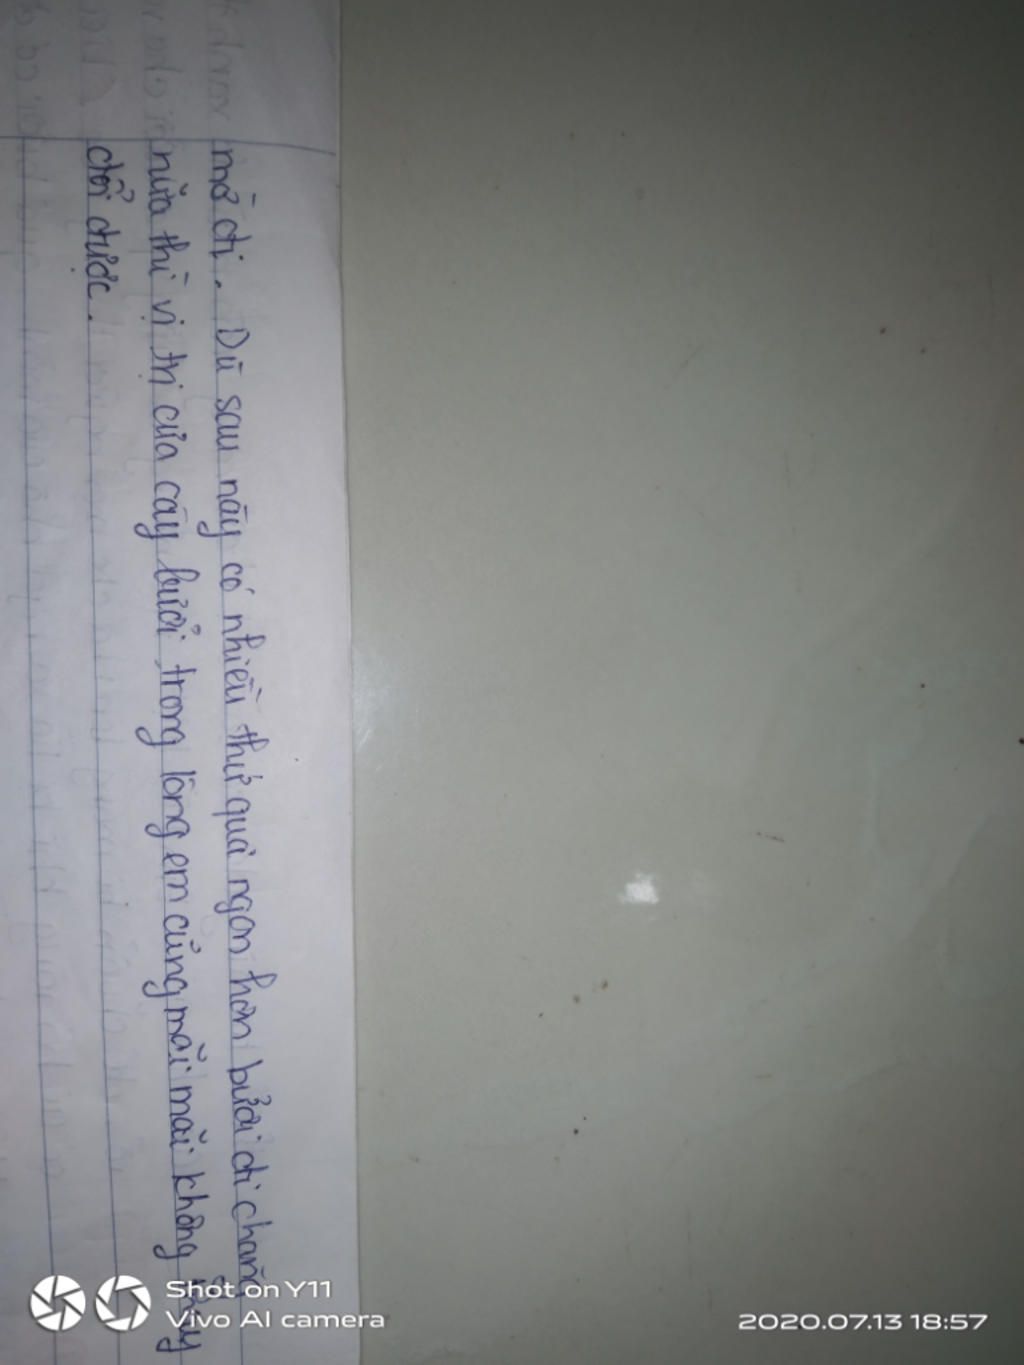 mờ đi. Dù sau này có nhiều thứ quả ngon hơn bưởi đi chăng
nữa thì vị trí của cây bưởi trong lòng em cũng mãi mãi không thay
đổi được.
Shot on Y11
Vivo AI camera
2020.07.13 18:57